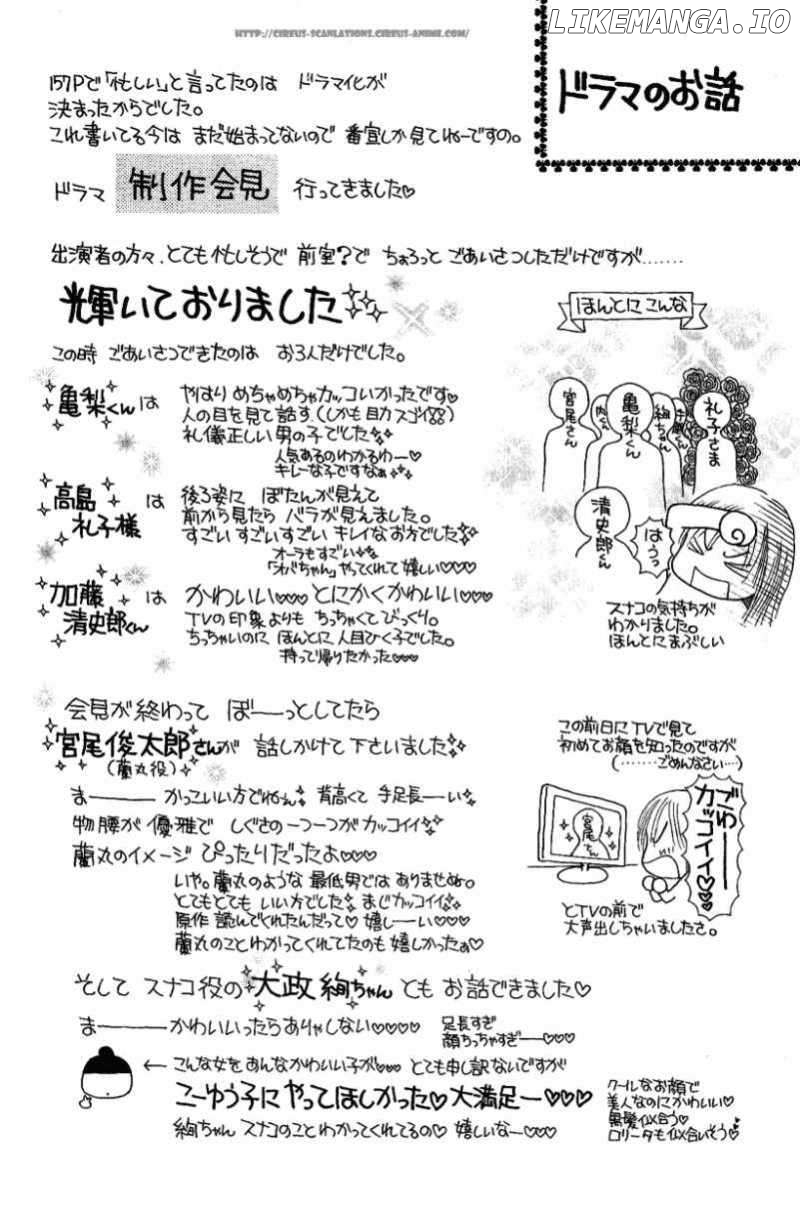 HTTP://CIREUS-SCANLATIONS.CIREUS-ANIME.COM/
LIKEMANGA.IO
ドラマのお話
157Pで「忙しい」と言ってたのは ドラマ化が
決まったからでした。
これ書いてる今は まだ始まってないので 番宣しか見てねーですの。
ドラマ 制作会見 行ってきました♡
出演者の方々、とても忙しそうで 前室?で ちょろっと ごあいさつしただけですが……
輝いておりました
この時 ごあいさつできたのは お3人だけでした。
亀梨くんは
やはり めちゃめちゃカッコいかったです♡
人の目を見て話す(しかも目力スゴイ)
礼儀正しい男の子でした
人気あるのわかるわー♡
キレーな子ですなぁ
高島礼子様は
後ろ姿に ぼたんが見えて
前から見たら バラが見えました。
すごい すごい すごい キレイなお方でした
オーラもすごい
「オバちゃん」やってくれて 嬉しい♡♡♡
加藤清史郎くんは
かわいい♡♡♡ とにかくかわいい♡♡♡
TVの印象よりも ちっちゃくてびっくり。
ちっちゃいのに ほんとに人目ひく子でした。
持って帰りたかった♡♡♡
ほんとにこんな
宮尾さん
内くん
亀梨くん
絢ちゃん
手越くん
礼子さま
清史郎くん
はうっ
スナコの気持ちが
わかりました。
ほんとにまぶしい
会見が終わって ぼーーっとしてたら
宮尾俊太郎さんが 話しかけて下さいました
(蘭丸役)
まーーーー かっこいい方でねぇ 背高くて 手足長ーい
物腰が 優雅で しぐさの一つ一つが カッコイイ
蘭丸のイメージ ぴったりだったよ♡♡♡
いや。蘭丸のような 最低男では ありませぬ。
とてもとても いい方でした まじカッコイイ
原作 読んでくれたんだって♡ 嬉しーい♡♡♡
蘭丸のこと わかってくれてたのも 嬉しかったぁ♡
この前日にTVで見て
初めてお顔を知ったのですが
(……ごめんなさい…)
宮尾さん
ブわーー
カッコイイ♡♡♡
とTVの前で
大声出しちゃいましたさ。
そして スナコ役の 大政絢ちゃん とも お話できました♡
まーーーー かわいいったらありゃしない♡♡♡♡
足長すぎ
顔ちっちゃすぎー♡♡♡
← こんな女を あんなかわいい子が♡♡♡ とても申し訳ないですが
こーゆう子に やってほしかった♡ 大満足ー♡♡♡
絢ちゃん スナコのこと わかってくれてるの♡ 嬉しいなー♡♡♡
クールなお顔で
美人なのにかわいい♡
黒髪似合う♡
ロリータも似合いそう♡